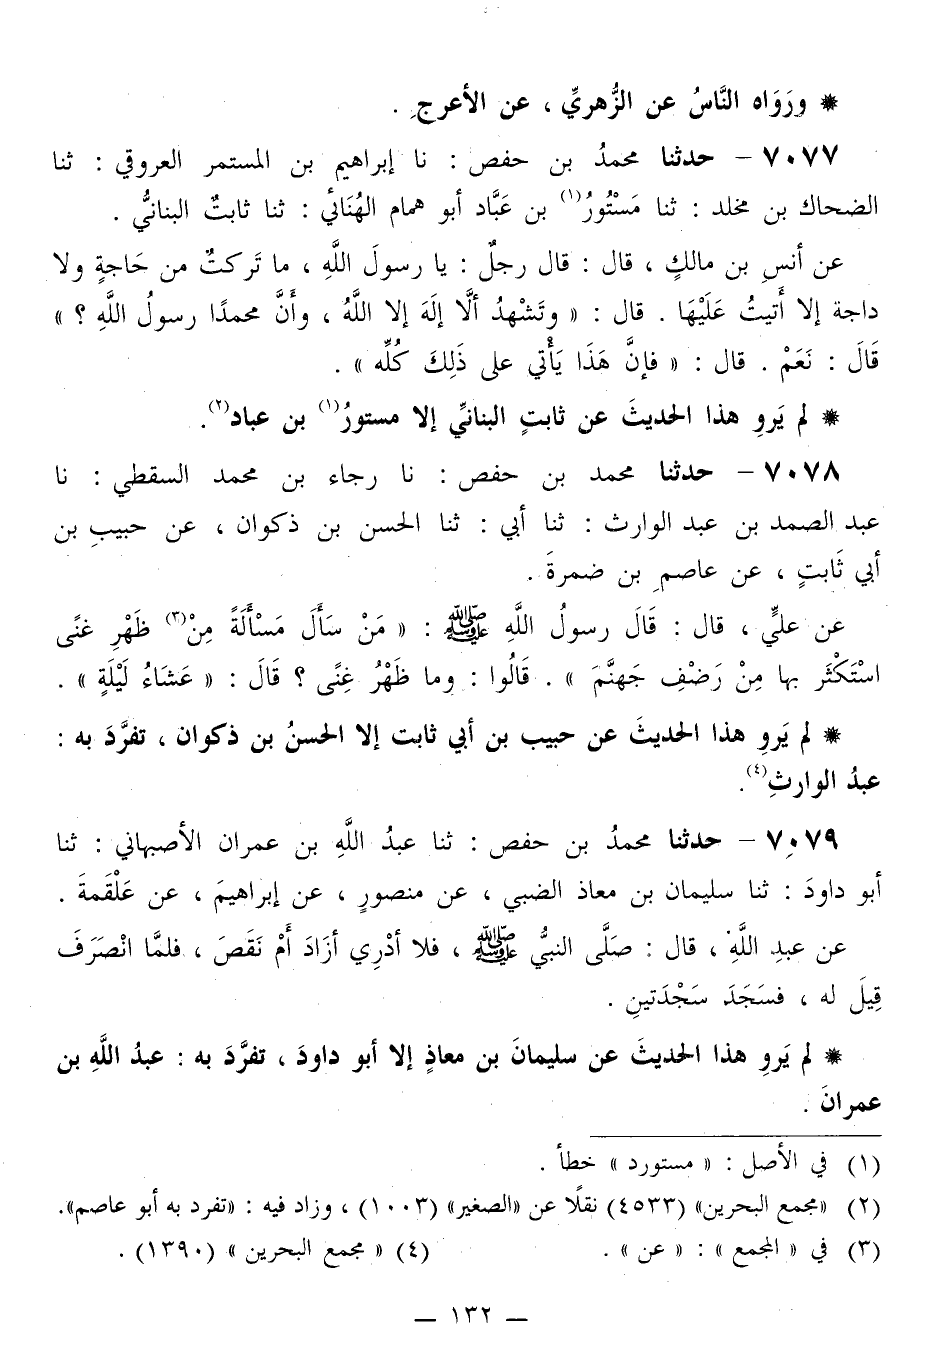 * ورَوَاه النَّاسُ عن الزُّهريِّ ، عن الأعرجِ .
٧٠٧٧ – حدثنا محمدُ بن حفص : نا إبراهيم بن المستمر العروقي : ثنا
الضحاك بن مخلد : ثنا مَسْتُورُ(١) بن عَبَّاد أبو همام الهُنَائي : ثنا ثابتٌ البنانيُّ .
عن أنسِ بن مالكٍ ، قال : قال رجلٌ : يا رسولَ اللَّهِ ، ما تَركتُ من حَاجةٍ ولا
داجة إلا أَتيتُ عَلَيْهَا . قال : « وتَشْهدُ ألَّا إلَهَ إلا اللَّهُ ، وأَنَّ محمدًا رسولُ اللَّهِ ؟ »
قَالَ : نَعَمْ . قال : « فإنَّ هَذَا يَأْتي على ذَلِكَ كُلِّه » .
* لم يَروِ هذا الحديثَ عن ثابتٍ البنانيِّ إلا مستورُ(١) بن عباد(٢).
٧٠٧٨ – حدثنا محمد بن حفص : نا رجاء بن محمد السقطي : نا
عبد الصمد بن عبد الوارث : ثنا أبي : ثنا الحسن بن ذكوان ، عن حبيبِ بن
أبي ثَابتٍ ، عن عاصمِ بن ضمرةَ .
عن عليٍّ ، قال : قَالَ رسولُ اللَّهِ ﷺ : « مَنْ سَأَلَ مَسْأَلَةً مِنْ(٣) ظَهْرِ غنًى
اسْتَكْثَر بها مِنْ رَضْفِ جَهنَّمَ » . قَالُوا : وما ظَهْرُ غِنًى ؟ قَالَ : « عَشَاءُ لَيْلَةٍ » .
* لم يَروِ هذا الحديثَ عن حبيب بن أبي ثابت إلا الحسنُ بن ذكوان ، تفرَّدَ به :
عبدُ الوارثِ(٤).
٧٠٧٩ – حدثنا محمدُ بن حفص : ثنا عبدُ اللَّهِ بن عمران الأصبهاني : ثنا
أبو داودَ : ثنا سليمان بن معاذ الضبي ، عن منصورٍ ، عن إبراهيمَ ، عن عَلْقَمةَ .
عن عبدِ اللَّهِ ، قال : صَلَّى النبيُّ ﷺ ، فلا أدْرِي أزَادَ أَمْ نَقَصَ ، فلمَّا انْصَرَفَ
قِيلَ له ، فسَجَدَ سَجْدَتينِ .
* لم يَروِ هذا الحديثَ عن سليمانَ بن معاذٍ إلا أبو داودَ ، تفرَّدَ به : عبدُ اللَّهِ بن
عمرانَ .
(١) في الأصل : « مستورد » خطأ .
(٢) «مجمع البحرين» (٤٥٣٣) نقلًا عن «الصغير» (١٠٠٣) ، وزاد فيه : «تفرد به أبو عاصم».
(٣) في « المجمع » : « عن » . (٤) « مجمع البحرين » (١٣٩٠) .
– ١٣٢ –